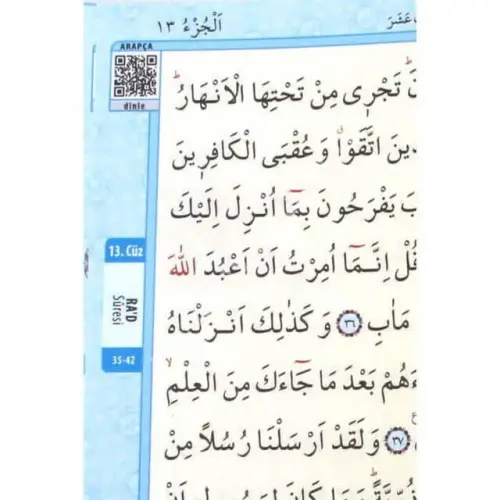 اَلْجُزْءُ ١٣
ARAPÇA
dinle
تَجْرٖى مِنْ تَحْتِهَا الْاَنْهَارُ
اتَّقَوْا وَعُقْبَى الْكَافِرٖينَ
يَفْرَحُونَ بِمَٓا اُنْزِلَ اِلَيْكَ
اِنَّمَٓا اُمِرْتُ اَنْ اَعْبُدَ اللّٰهَ
مَاٰبِ ﴿٣٦﴾ وَكَذٰلِكَ اَنْزَلْنَاهُ
بَعْدَ مَا جَٓاءَكَ مِنَ الْعِلْمِ
﴿٣٧﴾ وَلَقَدْ اَرْسَلْنَا رُسُلًا مِنْ
13. Cüz
RA'D
Sûresi
35-42